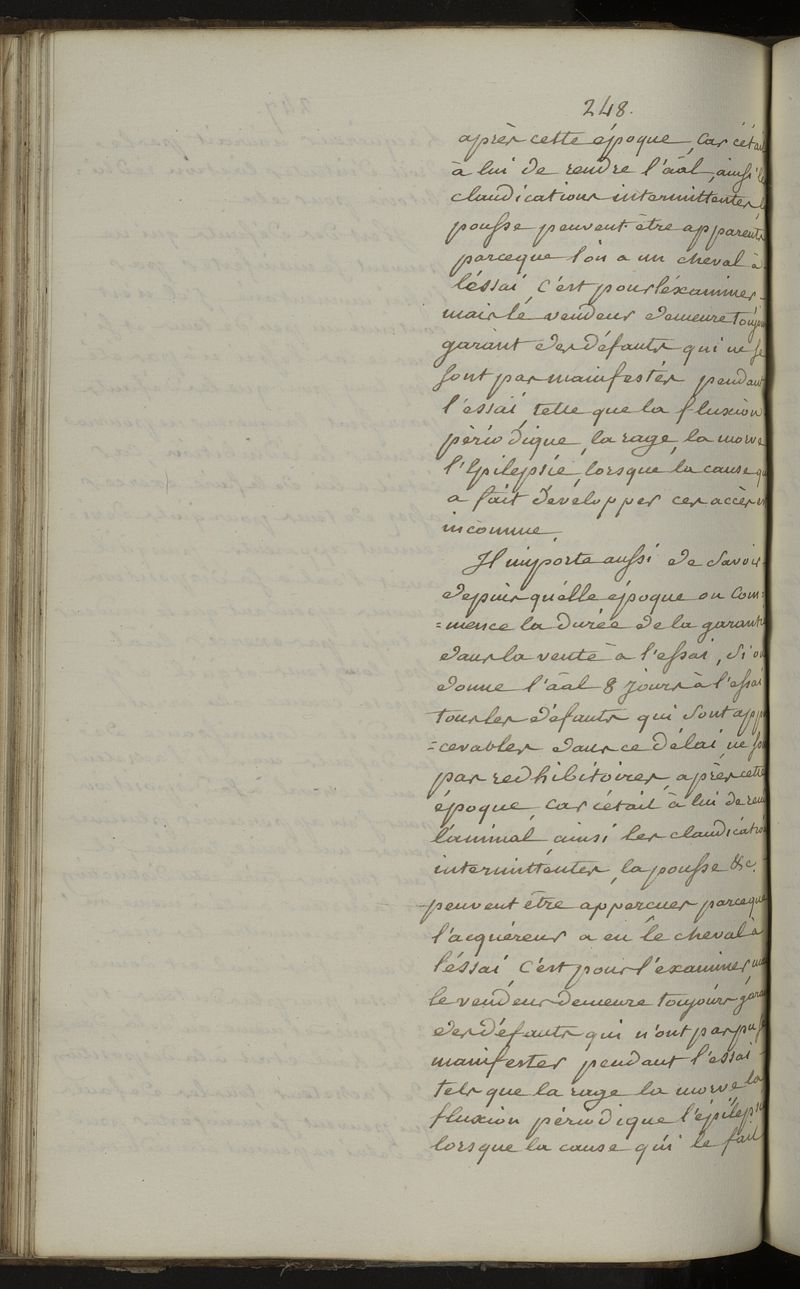 248.
après cette époque, car c'étai
à lui de rendre l'aâl, ainsi le
claudications intermittentes, l
pousse peuvent être apparents
parceque l'on a un cheval à
l'éssai, c'est pour l'éxaminer
mais le vendeur demeure toujou
garant des défauts qui ne se
sont pas manifestés pendant
l'essai, telle que la fluxion
pèriodique, la rage, la morve
l'Epilepsie, lorsque la cause qu
a fait développer ces accès es
inconnue.
Il importe aussi de savoir
depuis quélle époque ou com:
=mence la durée de la garanti
dans la vente à l'essai, si on
donne l'aâl 8 jours à l'essai
tous les défauts qui sont app
=cevables dans ce délai, ne so
pas redhibitoires, après cette
époque, car c'était à lui de ren
l'animal, ainsi les claudicatio
intermittentes, la pousse &c.
peuvent être appercues parceque
l'acquéreur a eu le cheval à
l'éssai, c'est pour l'examiner, ma
le vendeur demeure toujours gara
des défauts qui n'ont pas pu se
manifester pendant l'essai
tels que la rage la morve, la
fluxion périodique l'épileps
lorsque la cause qui le fait